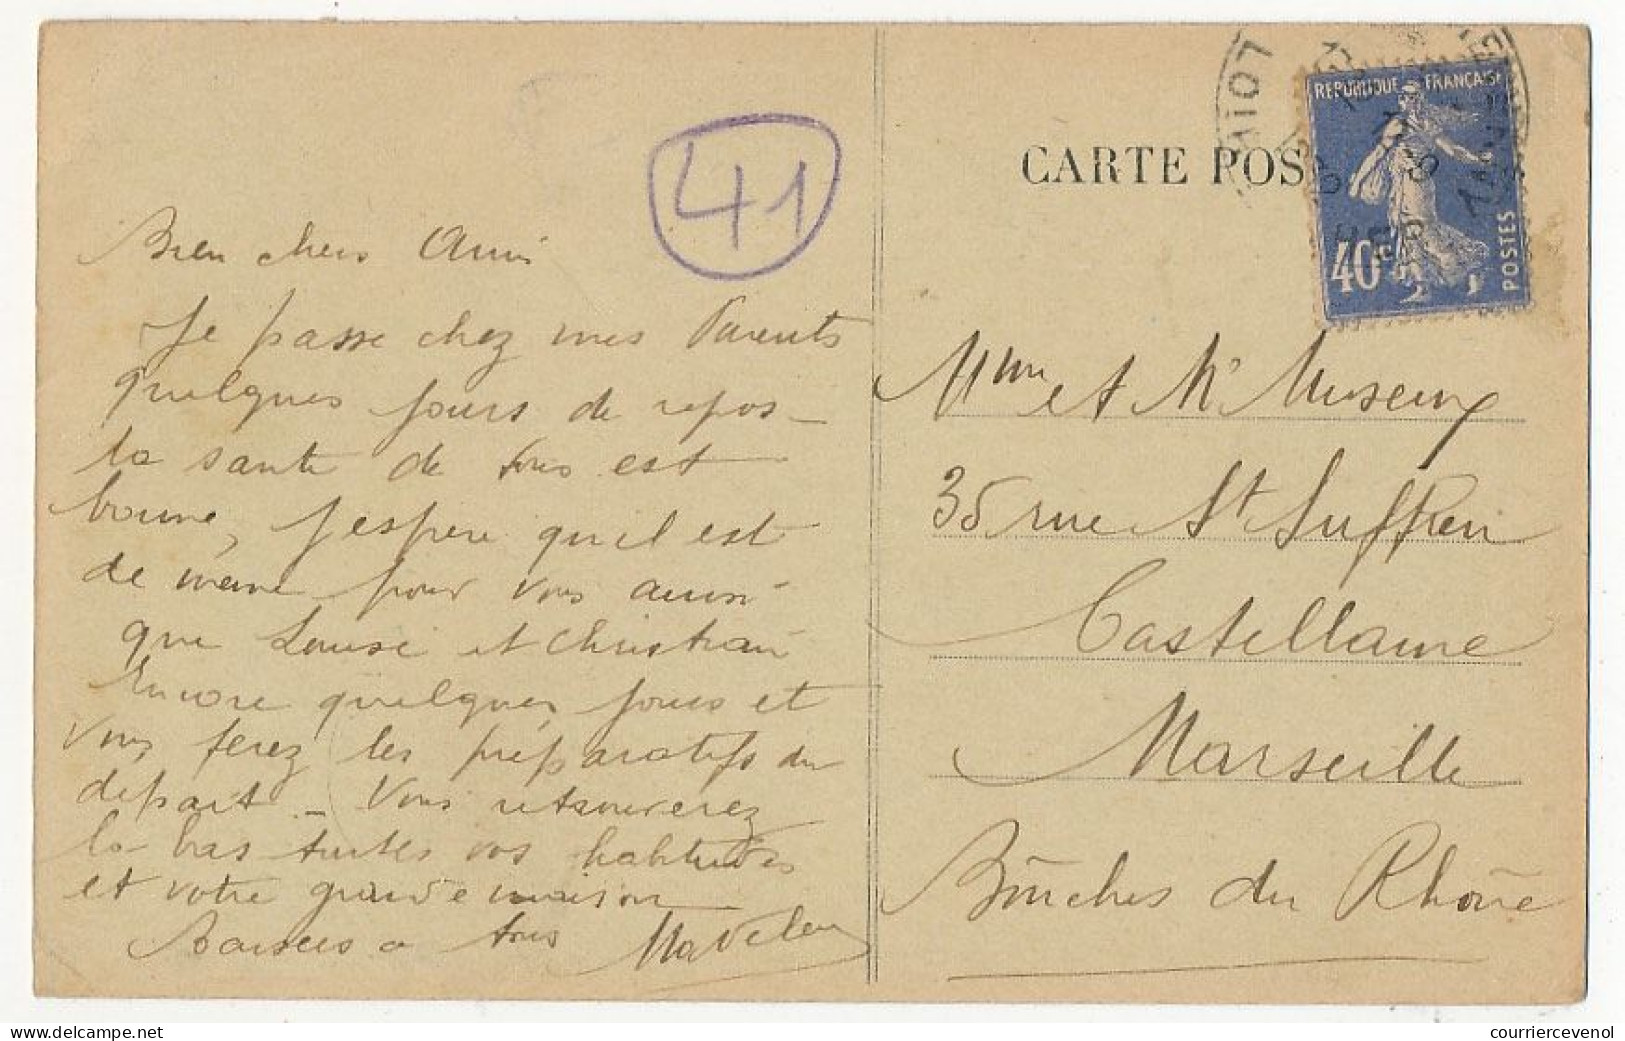 41
Bien chers Amis
Je passe chez mes Parents
quelques jours de repos –
la sante de tous est
bonne, j'espere qu'il est
de meme pour vous aussi
que Louise et Christian
Encore quelques jours et
vous ferez les préparatifs du
depart – Vous retrouverez
la bas toutes vos habitudes
et votre grande maison
Baisers a tous
CARTE POS
REPUBLIQUE FRANÇAISE
40c
POSTES
Mme et Mr
35 rue St Suffren
Castellane
Marseille
Bouches du Rhône
courriercevenol
www.delcampe.net